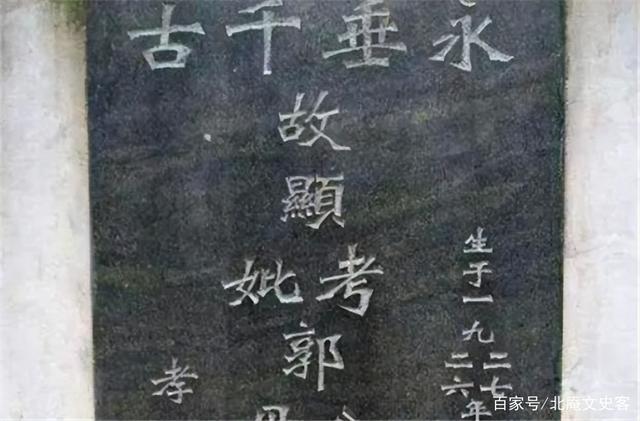 永垂千古
生于一九
二七年
二六
故顯
考
妣
郭
孝
百家号/北庵文史客